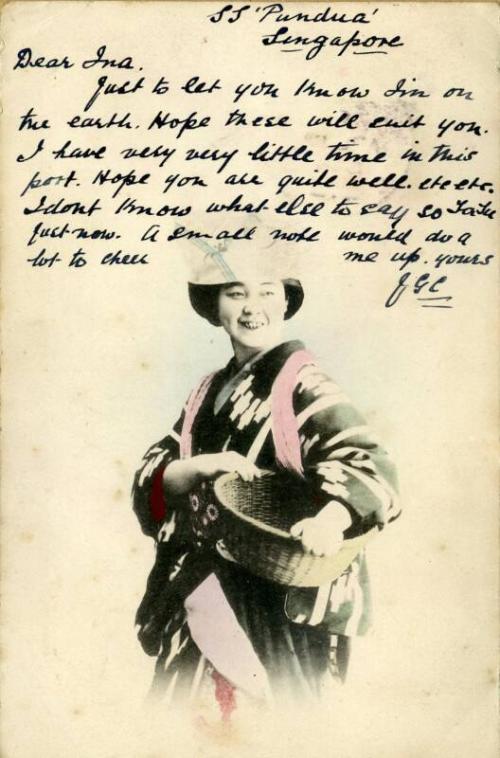 SS 'Pundua'
Singapore
Dear Ina.
Just to let you know I'm on
the earth. Hope these will suit you.
I have very very little time in this
port. Hope you are quite well. etc etc.
I dont know what else to say so TaTa
just now. A small note would do a
lot to cheer me up. yours
JGC